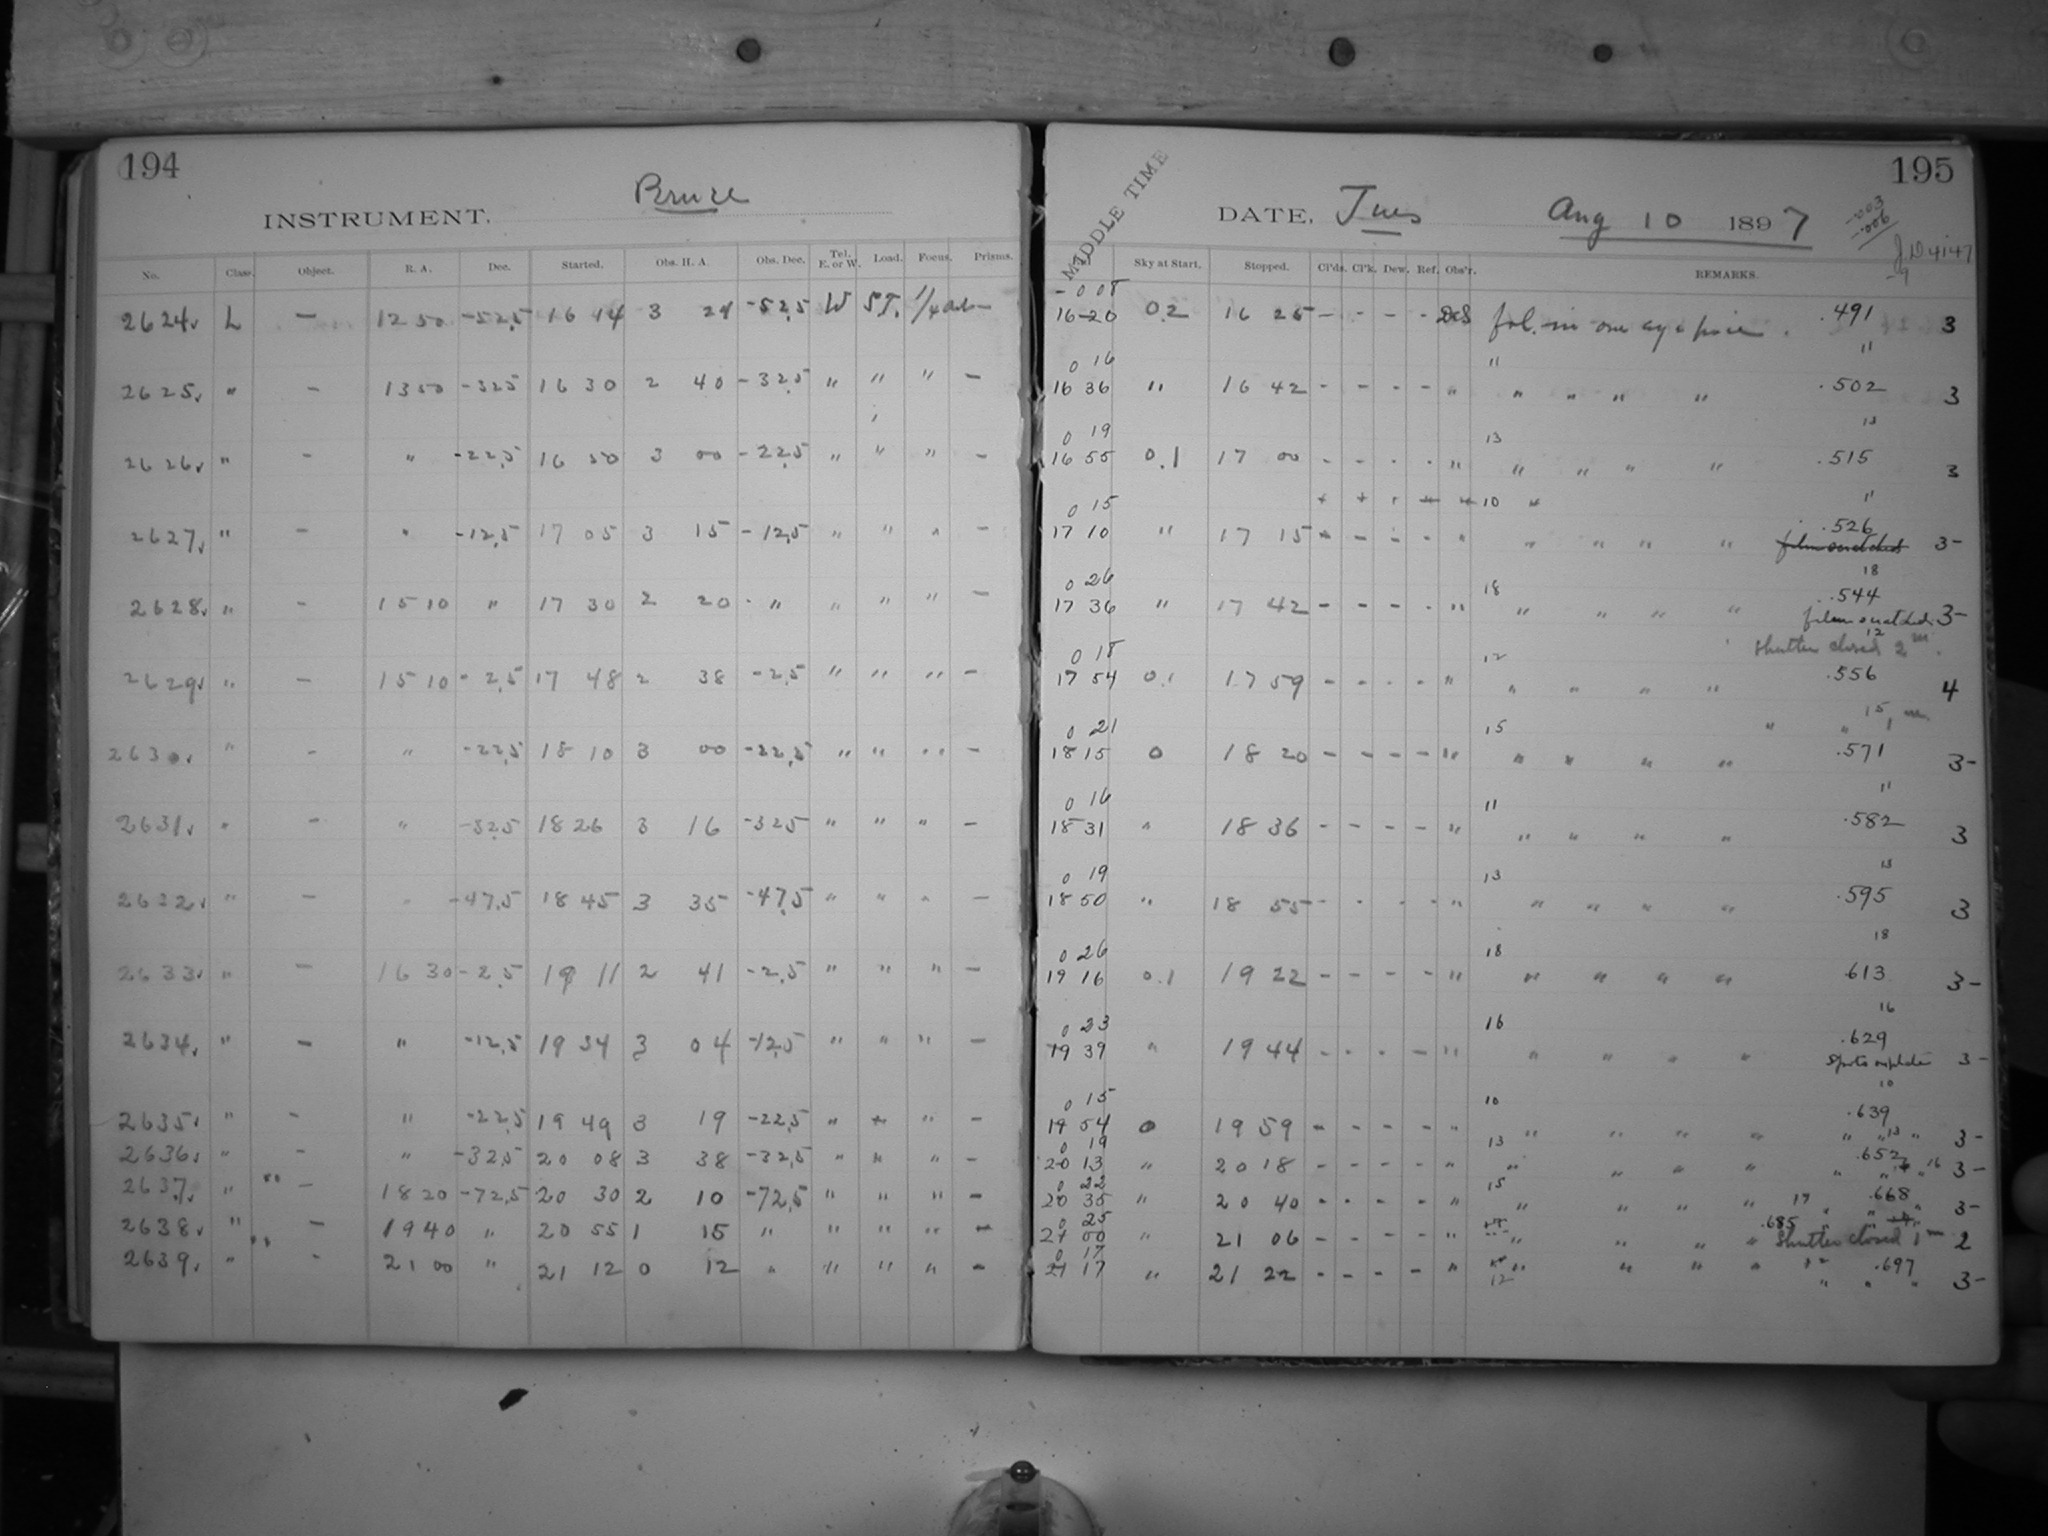 194
Bruce
INSTRUMENT.
No. Class. Object. R. A. Dec. Started. Obs. H. A. Obs. Dec. Tel. E. or W. Load. Focus. Prisms.
2624 L — 12 50 -52.5 16 14 3 24 -52.5 W ST.
2625 " - 13 50 -32.5 16 30 2 40 -32.5 " " " -
2626 " - " -22.5 16 50 3 00 -22.5 " " " -
2627 " - " -12.5 17 05 3 15 -12.5 " " " -
2628 " - 15 10 " 17 30 2 20 " " " " -
2629 " - 15 10 -2.5 17 48 2 38 -2.5 " " " -
2630 " - " -22.5 18 10 3 00 -22.5 " " " -
2631 " - " -32.5 18 26 3 16 -32.5 " " " -
2632 " - " -47.5 18 45 3 35 -47.5 " " " -
2633 " - 16 30 -2.5 19 11 2 41 -2.5 " " " -
2634 " - " -12.5 19 34 3 04 -12.5 " " " -
2635 " - " -22.5 19 49 3 19 -22.5 " " " -
2636 " - " -32.5 20 08 3 38 -32.5 " " " -
2637 " - 18 20 -72.5 20 30 2 10 -72.5 " " " -
2638 " - 19 40 " 20 55 1 15 " " " " -
2639 " - 21 00 " 21 12 0 12 " " " " -
195
MIDDLE TIME
DATE, Tues Aug 10 1897
-.003
-.006
J.D 4147
-9
Sky at Start. Stopped. Cl'ds. Cl'k. Dew. Ref. Obs'r. REMARKS.
-0 08
16 20 0.2 16 25 - - - - fol. in one eye piece. .491 3
0 16 11 11
16 36 " 16 42 - - - - " " " " " .502 3
0 19 13 13
16 55 0.1 17 00 - - - - " " " " " .515 3
0 15 10 11
17 10 " 17 15 - - - - " " " " " .526 3-
film scratched
0 26 18 18
17 36 " 17 42 - - - - " " " " " .544 3-
film scratched
shutter closed 2m.
0 18 12 12
17 54 0.1 17 59 - - - - " " " " " .556 4
0 21 15 15 " " 1m
18 15 0 18 20 - - - - " " " " " .571 3-
0 16 11 11
18 31 " 18 36 - - - - " " " " " .582 3
0 19 13 13
18 50 " 18 55 - - - - " " " " " .595 3
0 26 18 18
19 16 0.1 19 22 - - - - " " " " " .613 3-
0 23 16 16
19 39 " 19 44 - - - - " " " " " .629 3-
0 15 10 10
19 54 0 19 59 - - - - " " " " " .639 3-
0 19 13 13
20 13 " 20 18 - - - - " " " " " .652 3-
0 22 15 16
20 35 " 20 40 - - - - " " " " " .668 3-
0 25 17
21 00 " 21 06 - - - - " " " " " .685 shutter closed 1m 2
0 17 12 12
21 17 " 21 22 - - - - " " " " " .697 3-